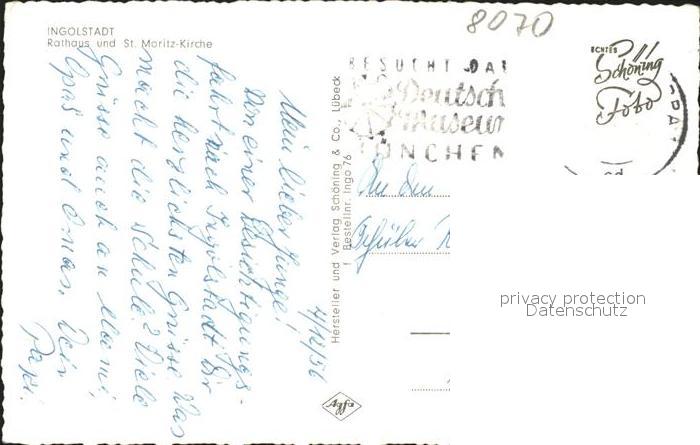 8070
INGOLSTADT
Rathaus und St. Moritz-Kirche
ECHTES
Schöning
Foto
BESUCHT DAS
Deutsche
Museum
MÜNCHEN
4/12/56
Mein lieber Junge!
Von einer Besichtigungs-
fahrt nach Ingolstadt Dir
die herzlichsten Grüsse. Was
macht die Schule? Viele
Grüsse auch an Mami,
Opas und Omas. Dein
Papi.
Hersteller und Verlag Schöning & Co., Lübeck
Bestellnr. Ingo 76
An den
Schüler
Agfa
privacy protection
Datenschutz